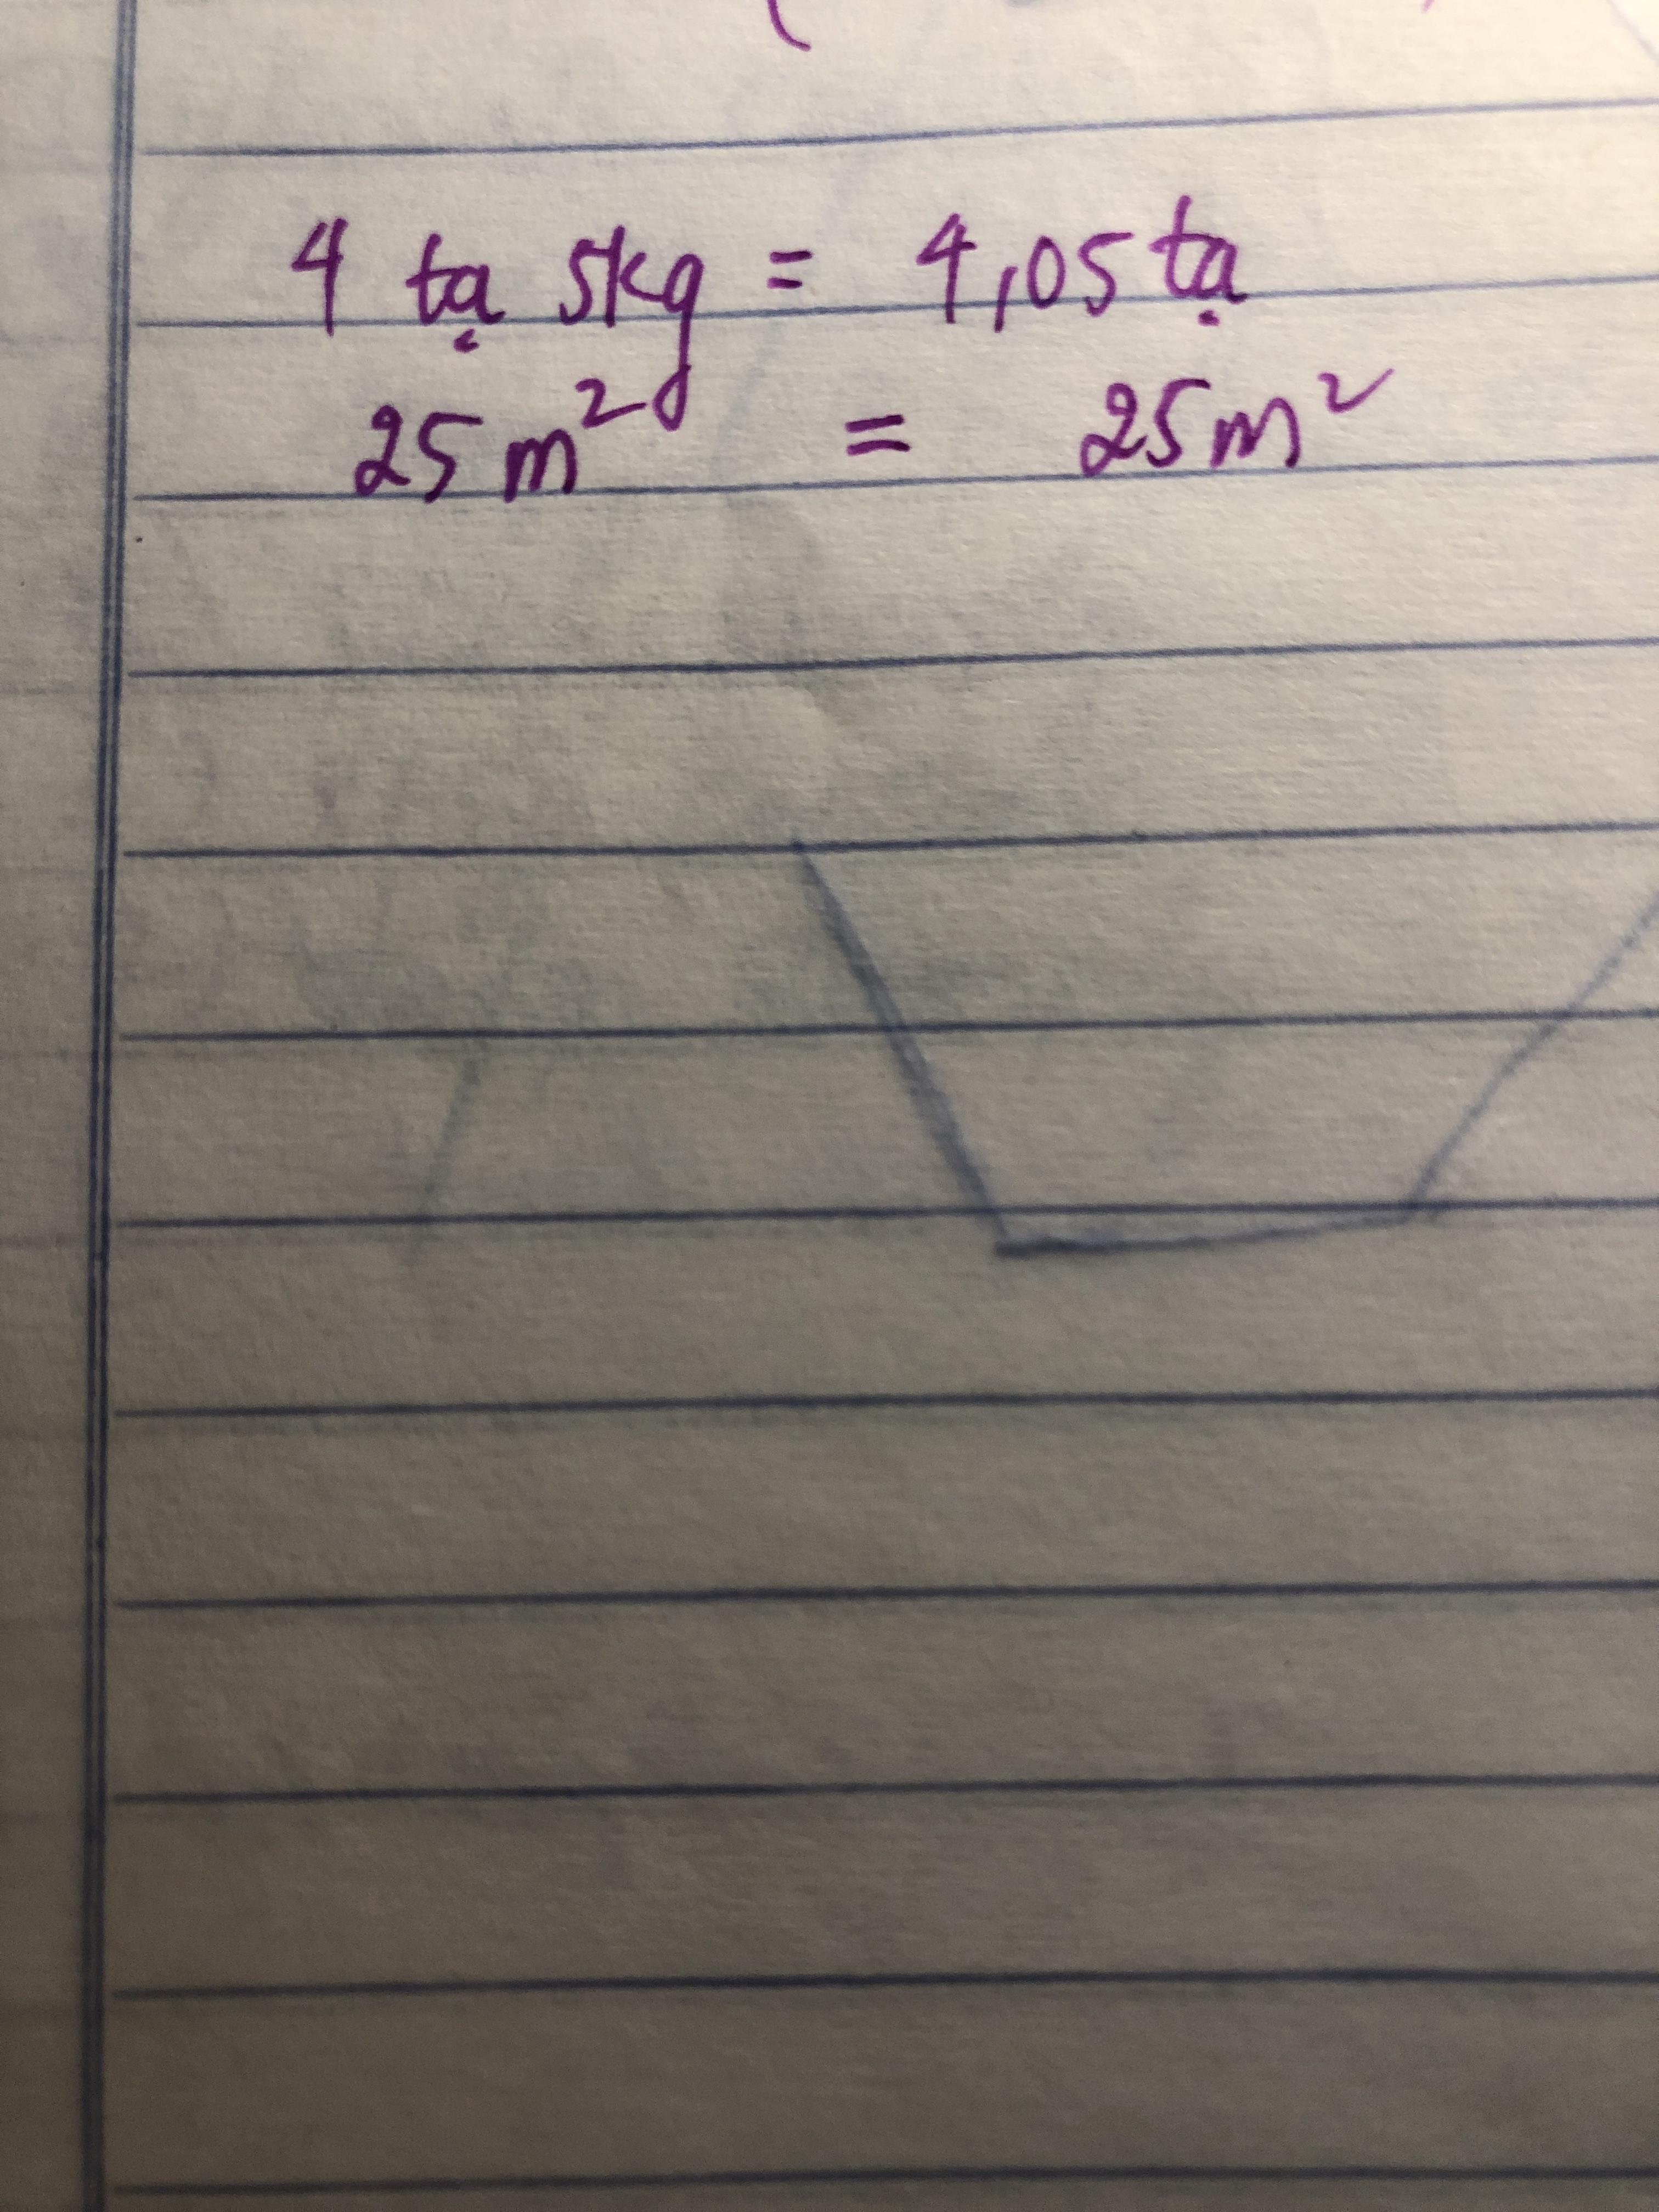 4 tạ 5kg = 4,05 tạ
25 m² = 25 m²